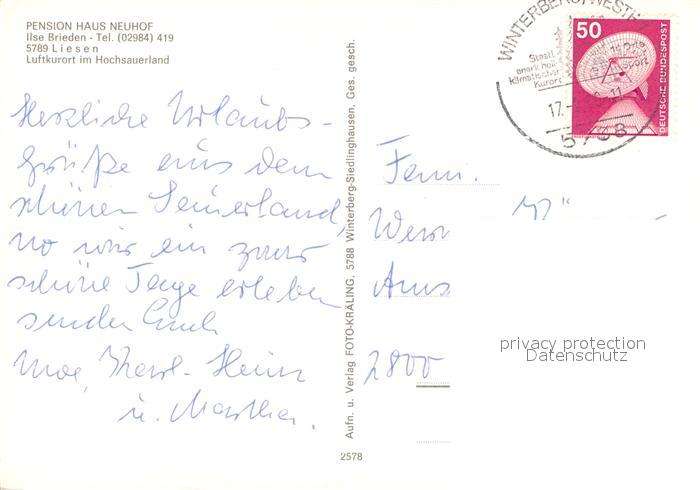 PENSION HAUS NEUHOF
Ilse Brieden - Tel. (02984) 419
5789 Liesen
Luftkurort im Hochsauerland
Herzliche Urlaubs-
grüße aus dem
schönen Sauerland,
wo wir ein paar
schöne Tage erleben
senden Euch
Karl-Heinz
u. Martha.
Aufn. u. Verlag FOTO-KRÄLING, 5788 Winterberg-Siedlinghausen, Ges. gesch.
2578
WINTERBERG, WESTF
Staatl
anerk heil
klimatischer
Kurort
Sport
17.
5788
50
DEUTSCHE BUNDESPOST
Fam.
Wern
Ams
2800
privacy protection
Datenschutz